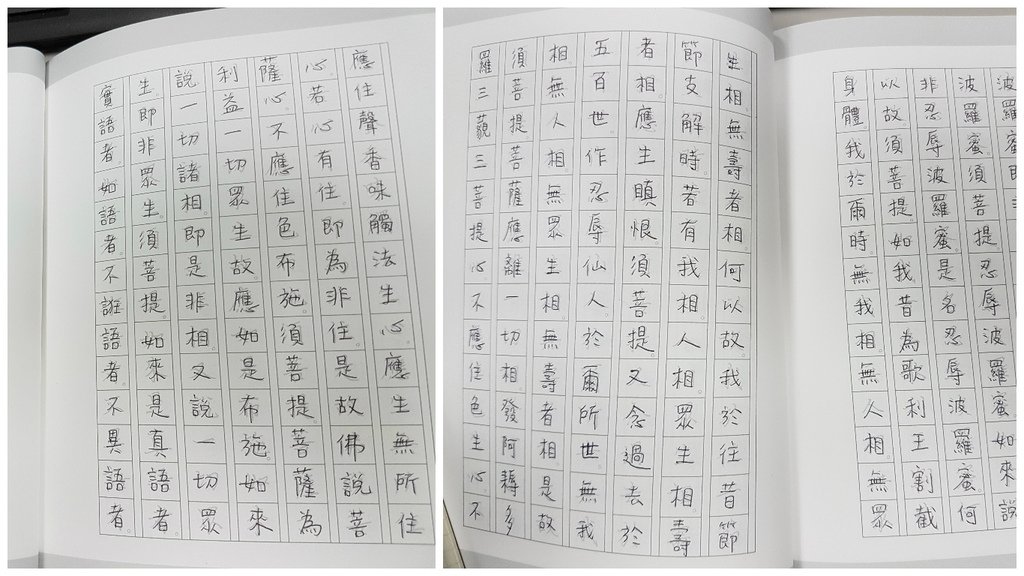 波羅蜜。須菩提。忍辱波羅蜜。如來說
非忍辱波羅蜜。是名忍辱波羅蜜。何
以故。須菩提。如我昔為歌利王割截
身體。我於爾時。無我相。無人相。無眾
生相。無壽者相。何以故。我於往昔節
節支解時。若有我相。人相。眾生相。壽
者相。應生瞋恨。須菩提。又念過去於
五百世。作忍辱仙人。於爾所世。無我
相。無人相。無眾生相。無壽者相。是故
須菩提。菩薩應離一切相。發阿耨多
羅三藐三菩提心。不應住色生心。不
應住聲香味觸法生心。應生無所住
心。若心有住。即為非住。是故佛說菩
薩心。不應住色布施。須菩提。菩薩為
利益一切眾生故。應如是布施。如來
說一切諸相。即是非相。又說一切眾
生。即非眾生。須菩提。如來是真語者
實語者。如語者。不誑語者。不異語者。